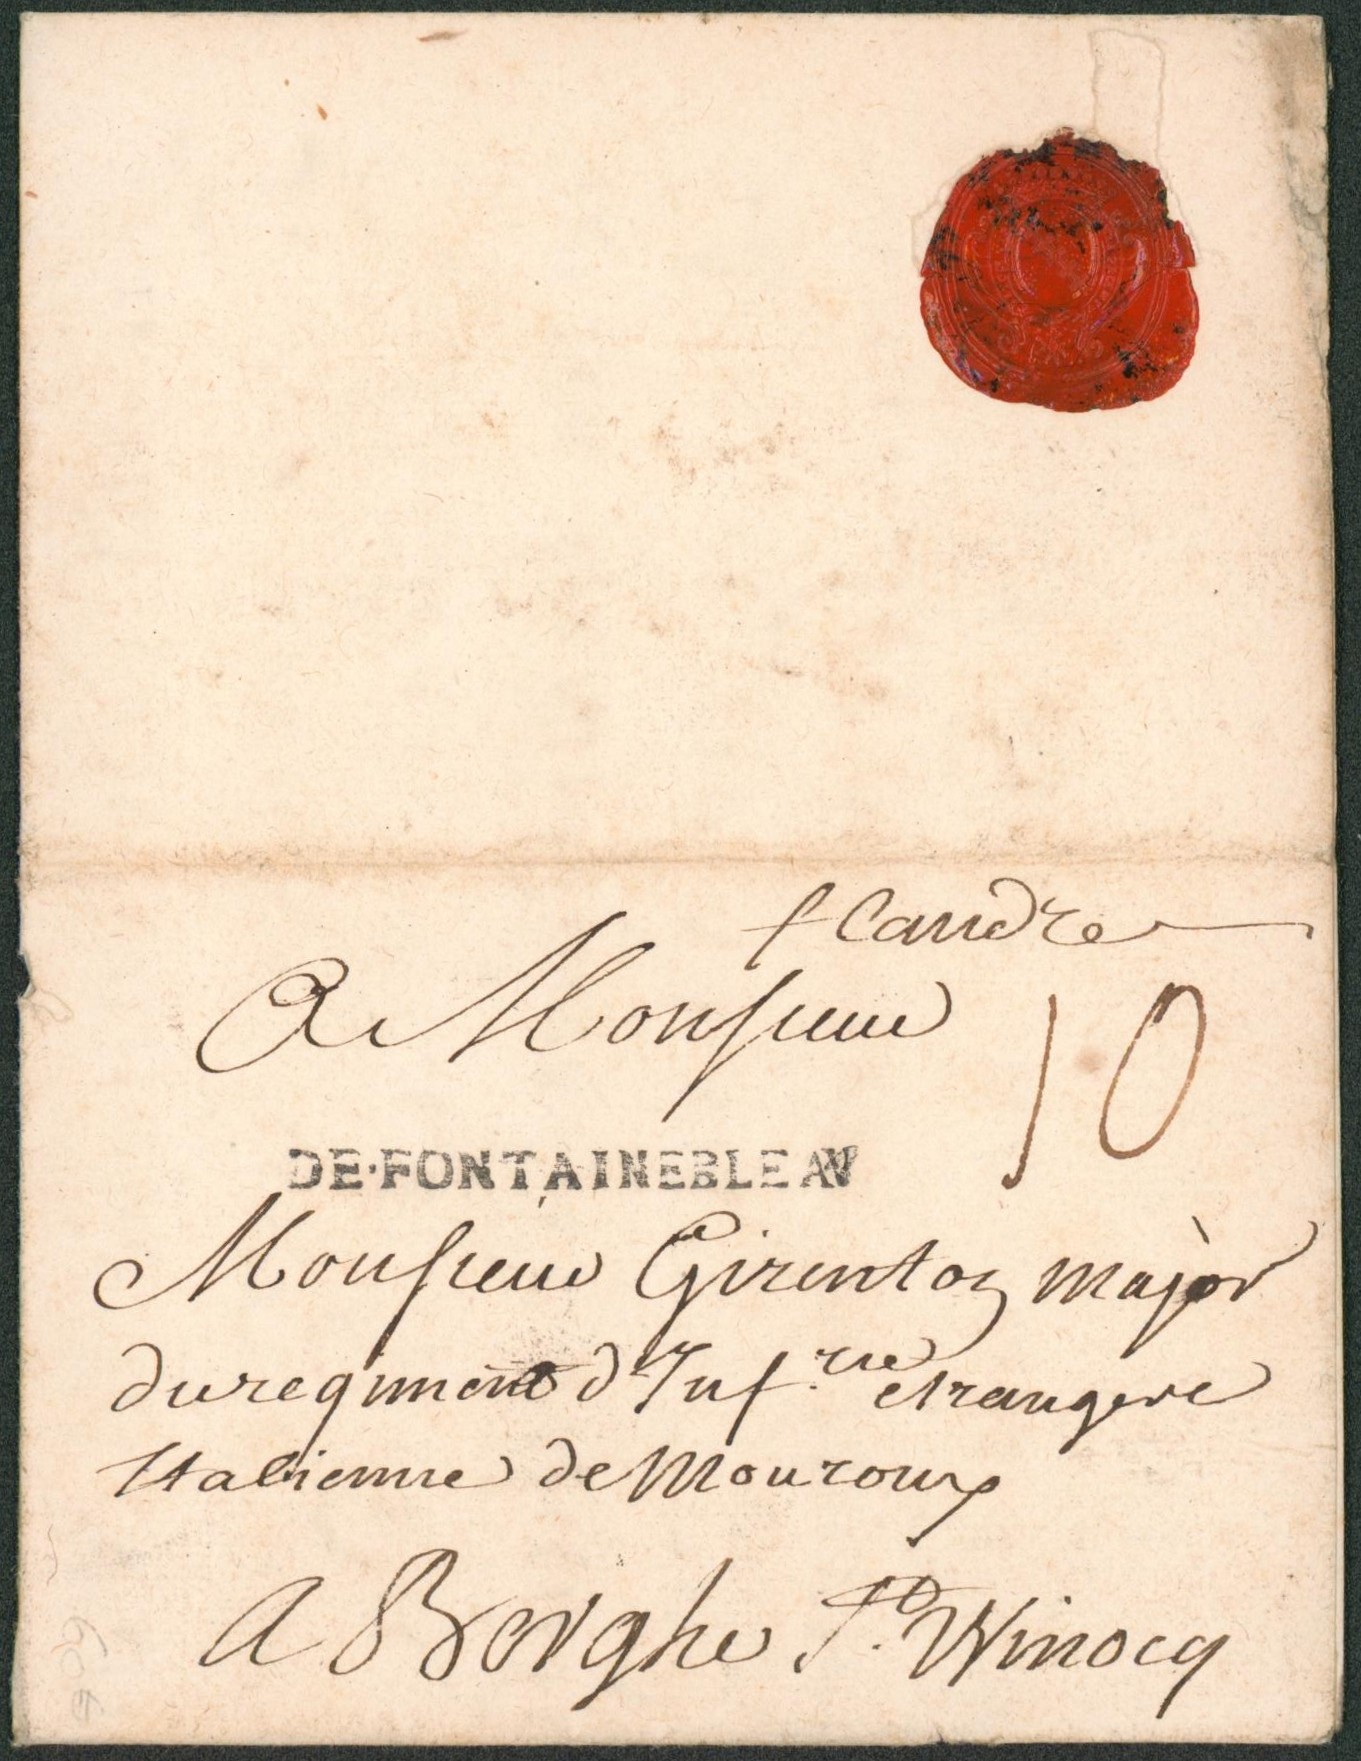 flandre
A Monsieur
10
DE·FONTAINEBLEAV
Monsieur Girenton major
du regiment d'Inf.rie etrangere
Italienne de Mouroux
A Berghe St. Winocq